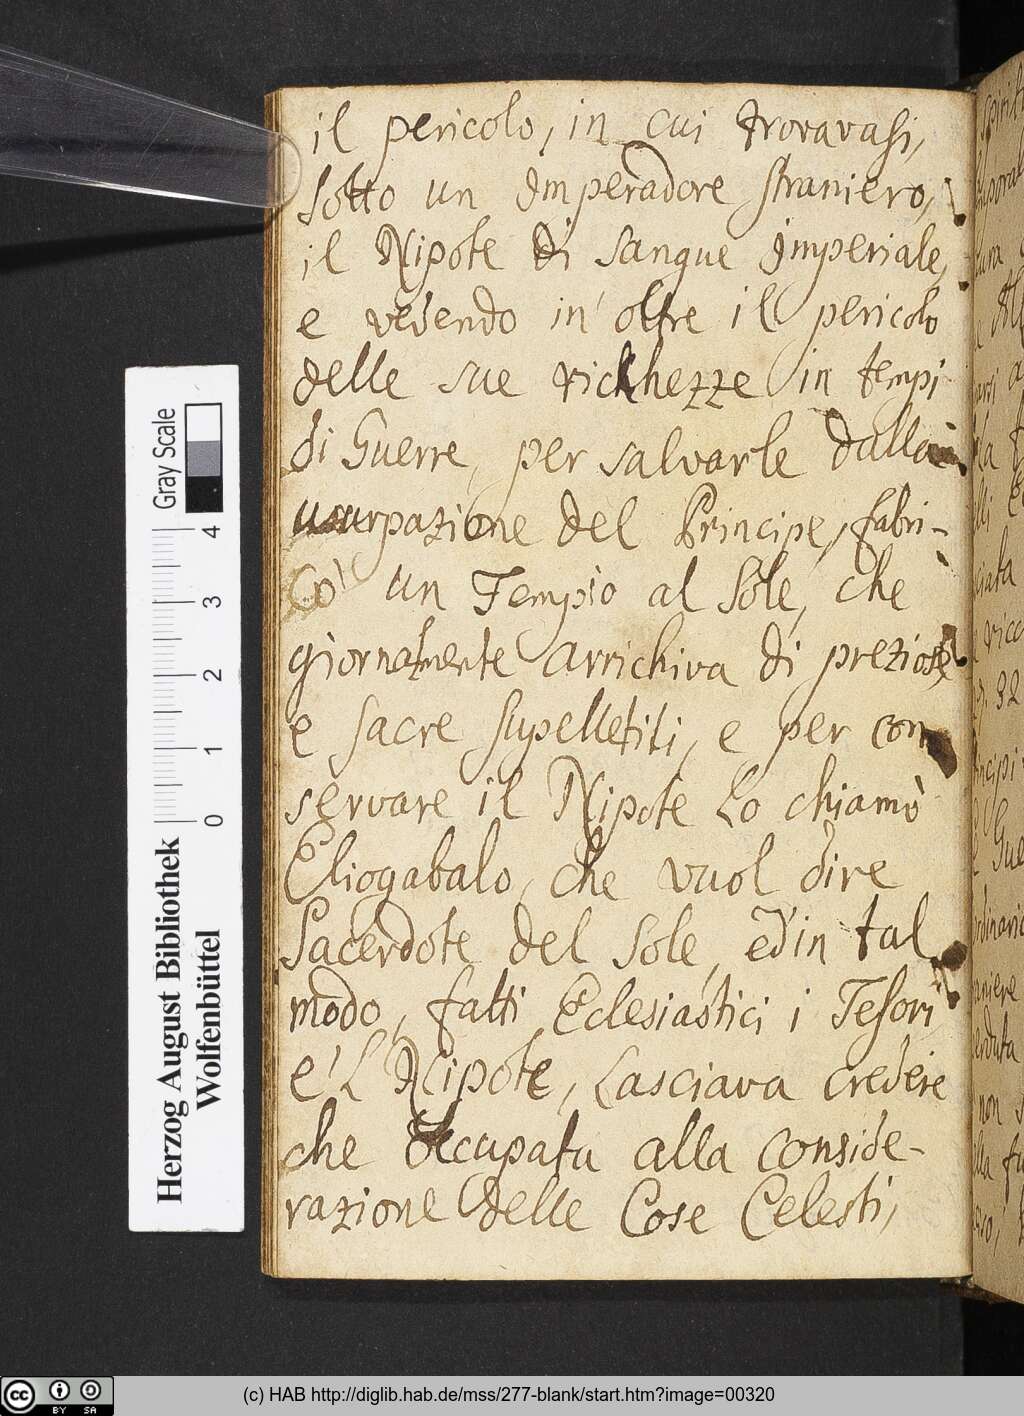 il pericolo, in cui trovavasi,
sotto un Imperadore straniero,
il Nipote di sangue Imperiale,
e vedendo in oltre il pericolo
delle sue richhezze in tempi
di Guerre, per salvarle dalla
usurpazione del Principe, fabri-
cò un Tempio al Sole, che
giornalmente arrichiva di preziose,
e sacre supelletili, e per con
servare il Nipote Lo chiamò
Eliogabalo, che vuol dire
Sacerdote del Sole, ed in tal
modo, fatti Eclesiastici i Tesori
e' L' Nipote, Lasciava credere
che occupata alla conside-
razione delle Cose Celesti,
Gray Scale
4
3
2
1
0
Herzog August Bibliothek
Wolfenbüttel
cc BY SA
(c) HAB http://diglib.hab.de/mss/277-blank/start.htm?image=00320